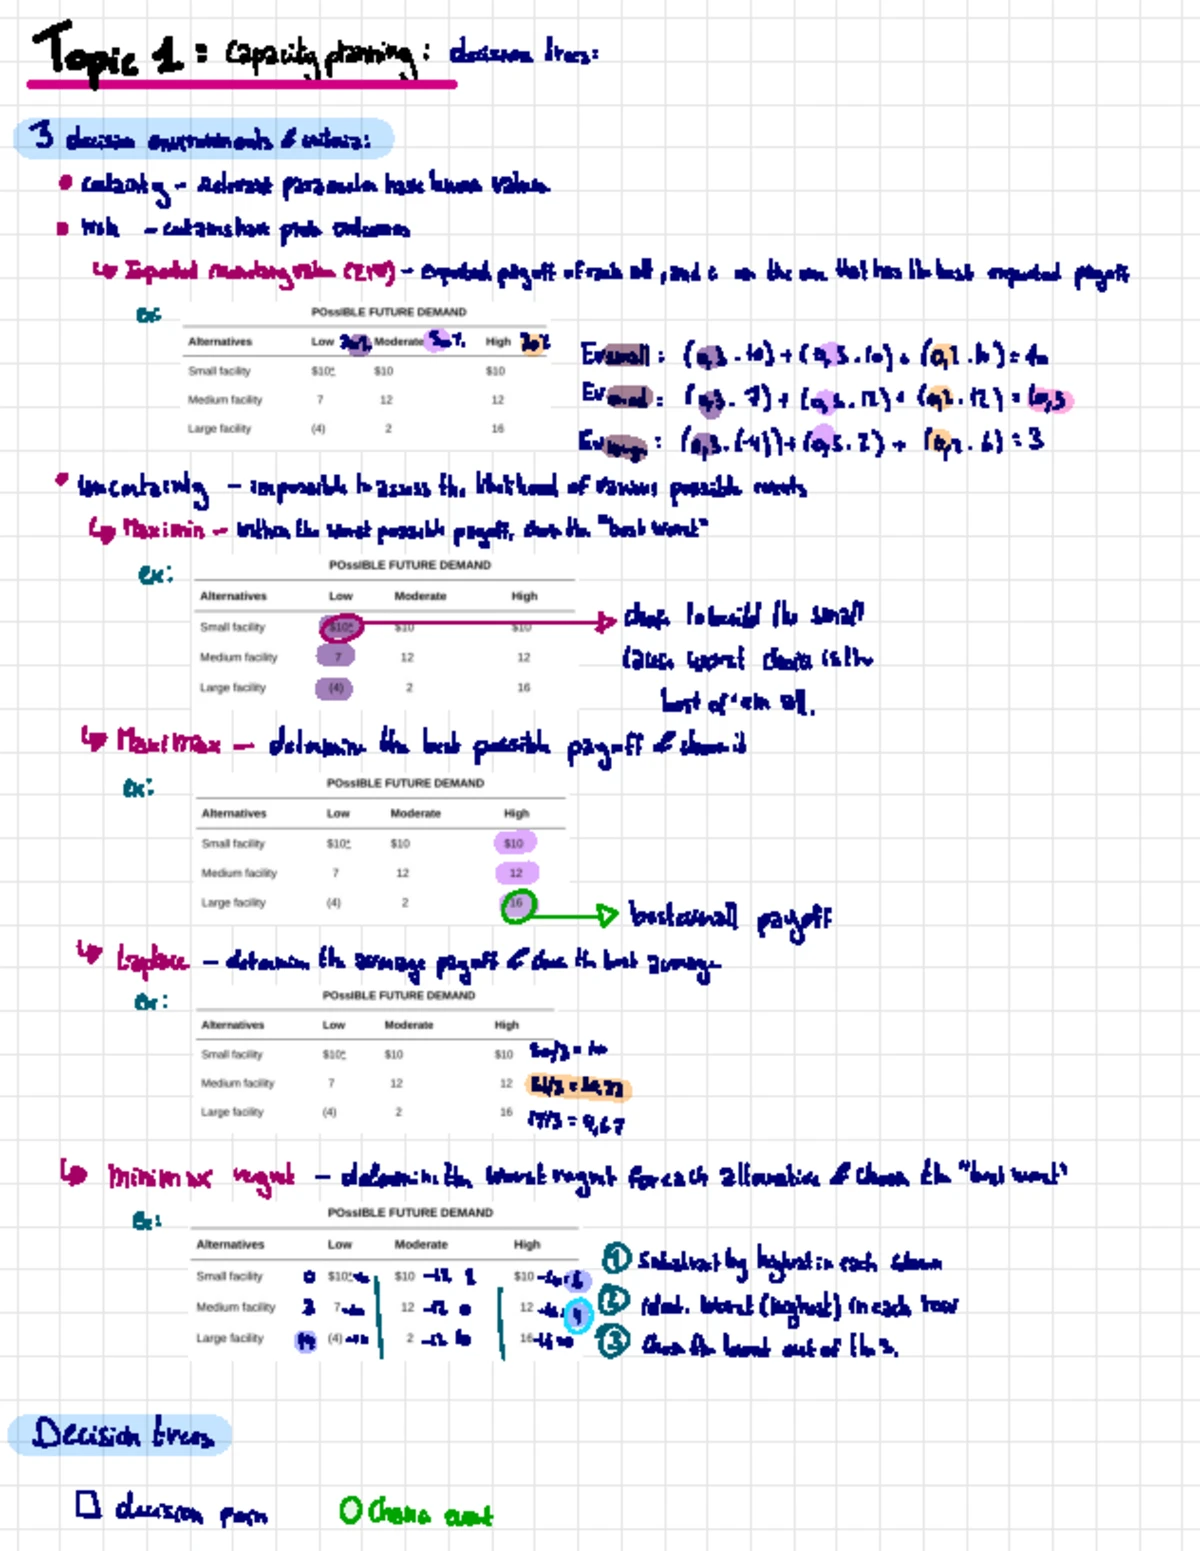 Topic 1: Capacity planning: decision trees:
3 decision environments & criteria:
Certainty - Relevant parameters have known values
Risk - certains have prob outcomes
Expected monetary value (EMV) - expected payoff of each alt, and c the one that has the best expected payoff
ex:
POssIBLE FUTURE DEMAND
Alternatives Low 30% Moderate 50% High 20%
Small facility $10 $10 $10
Medium facility 7 12 12
Large facility (4) 2 16
EV small: (0,3 . 10) + (0,5 . 10) + (0,2 . 10) = 10
EV med: (0,3 . 7) + (0,5 . 12) + (0,2 . 12) = 10,5
EV large: (0,3 . (-4)) + (0,5 . 2) + (0,2 . 6) = 3
Uncertainty - impossible to assess the likelihood of various possible events
Maximin - Within the worst possible payoff, the "best worst"
ex:
POssIBLE FUTURE DEMAND
Alternatives Low Moderate High
Small facility $10 $10 $10
Medium facility 7 12 12
Large facility (4) 2 16
chose to build the small
worst is the
best of 'em all.
Maximax - determine the best possible payoff & choose it
ex:
POssIBLE FUTURE DEMAND
Alternatives Low Moderate High
Small facility $10 $10 $10
Medium facility 7 12 12
Large facility (4) 2 16
best overall payoff
Laplace - determine the average payoff & chose the best average
ex:
POssIBLE FUTURE DEMAND
Alternatives Low Moderate High
Small facility $10 $10 $10 30/3 = 10
Medium facility 7 12 12 31/3 = 10,33
Large facility (4) 2 16 14/3 = 4,67
Minimax regret - determine the worst regret for each alternative & choose the "best worst"
Ex:
POssIBLE FUTURE DEMAND
Alternatives Low Moderate High
Small facility 0 $10 $10 -12 2 $10 -16 6
Medium facility 3 7 12 -12 0 12 -16 4
Large facility 14 (4) 2 -12 10 16 -16 0
1 Substract by highest in each column
2 Worst (highest) in each row
3 Chose the lowest out of the 3.
Decision trees
decision point
Chance event